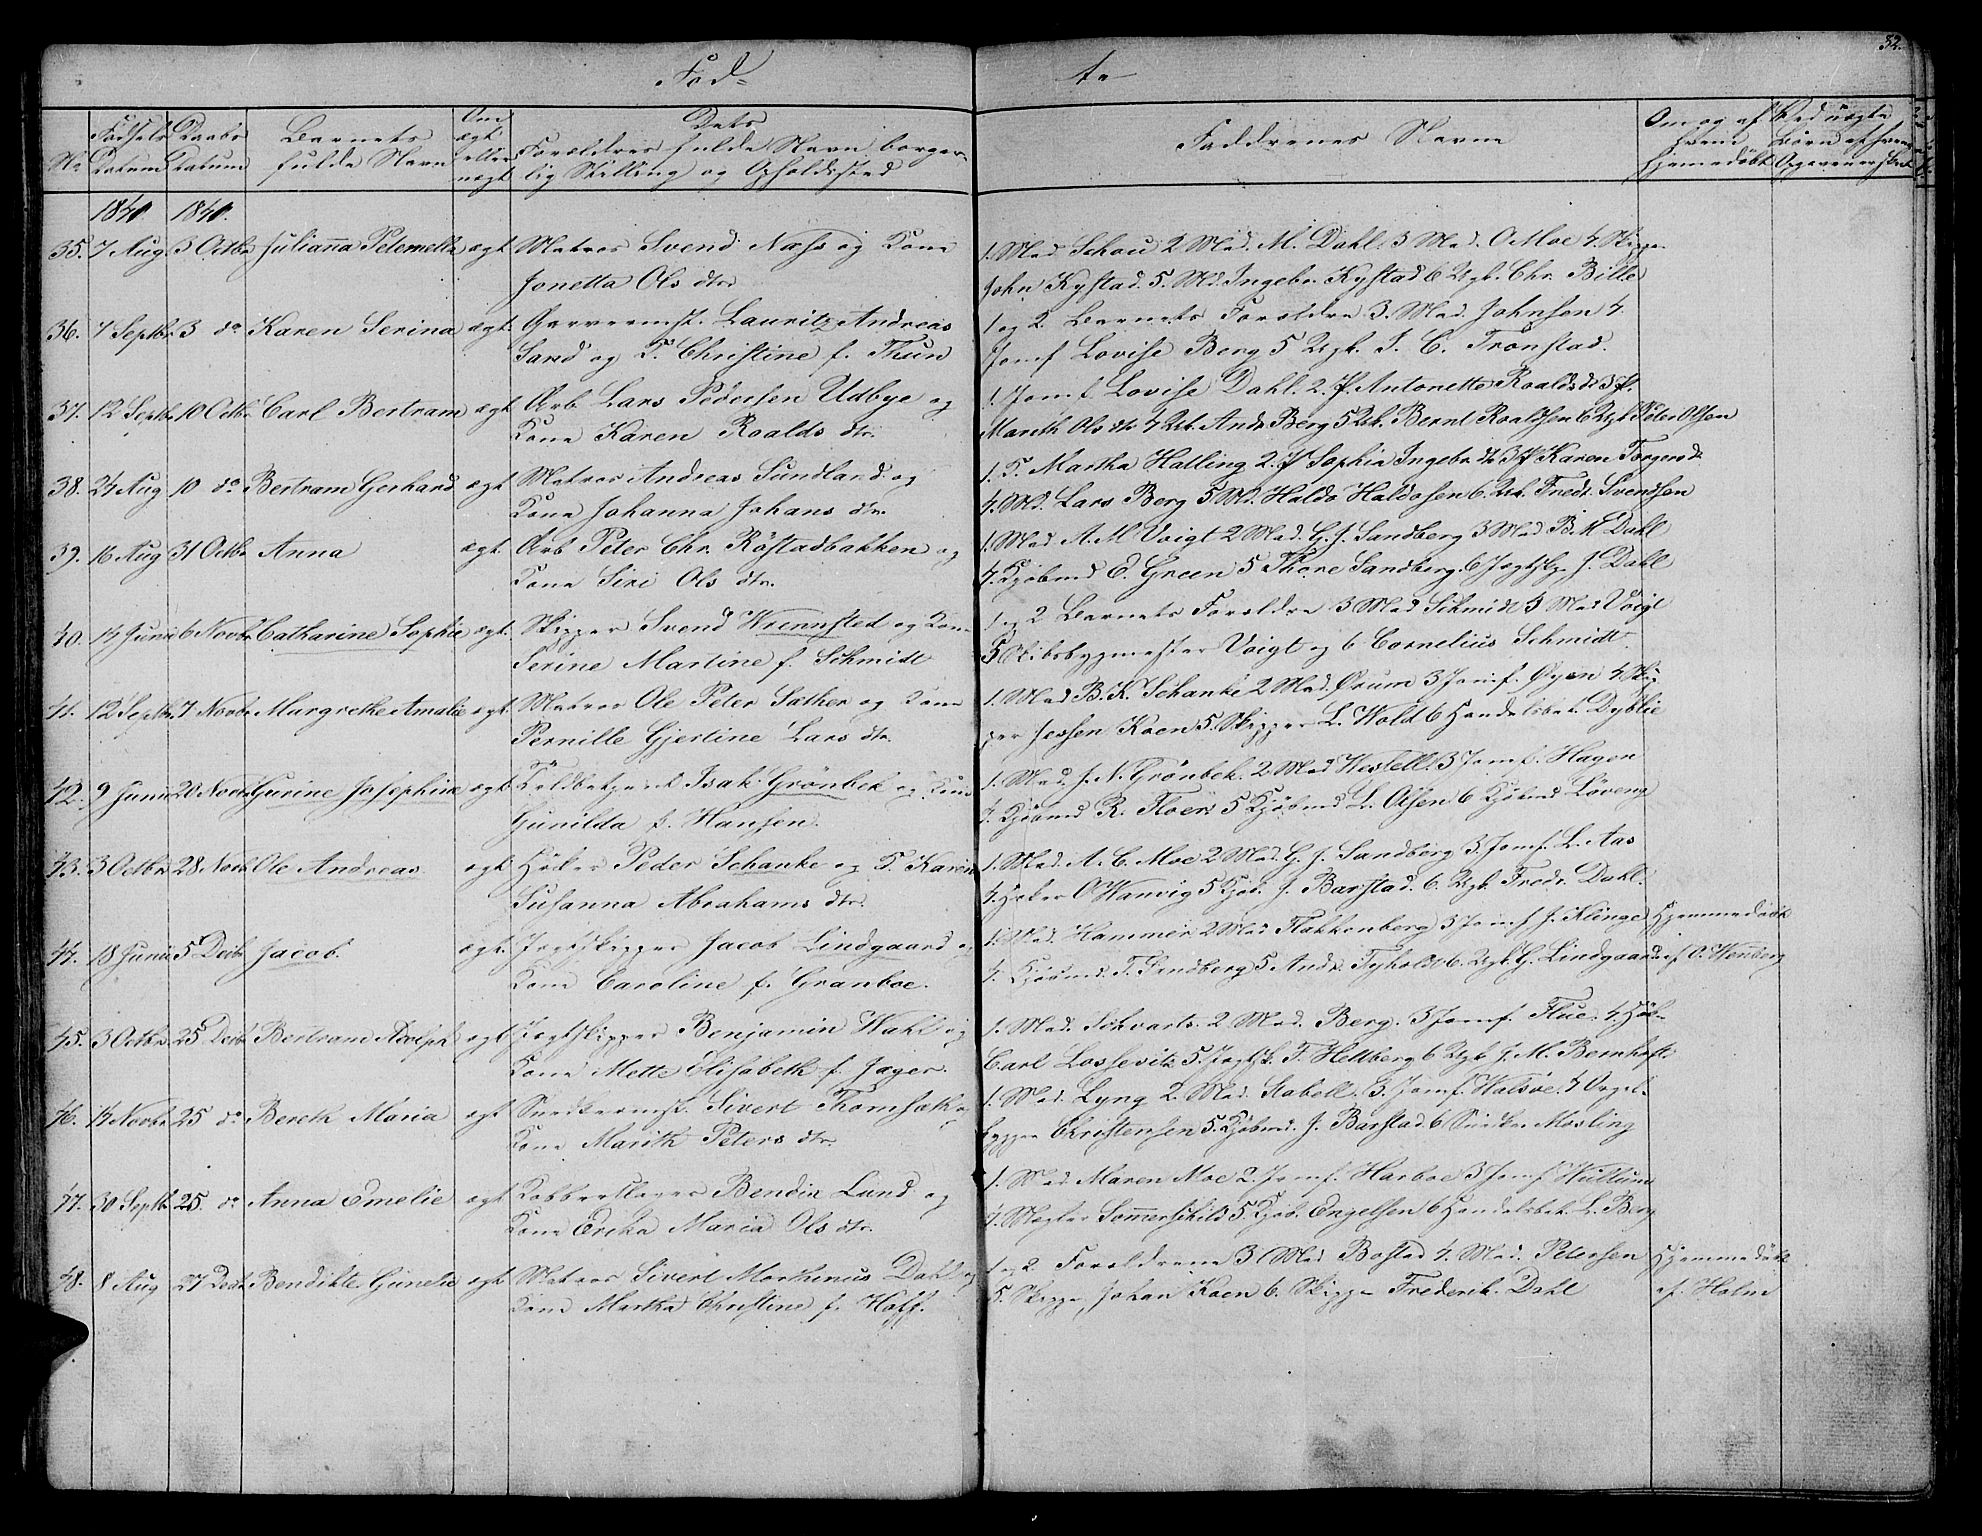 Fød- te
32.
No
Fødsels Datum
Daabs Datum
Barnets fulde Navn
Om ægte eller uægte
Dets Forældres fulde Navn borgerlig Stilling og Opholdssted
Faddrenes Navne
Om og af hvem hjemmedøbt
1840. 1840.
35. 7 Aug. 3 Octbr Julianna Peternella ægt. Matros Svend Næss og Kone
Jonetta Ols dtr
1. Mad Schou 2 Mad. M. Dahl 3 Mad. O Moe 4. Skipper
John Kystad. 5. Md. Ingebr. Kystad 6 Ugk. Chr. Bille
36. 7 Septbr. 3 do Karen Serina ægt. Garvermst. Lauritz Andreas
Sand og K. Christine f. Thun
1 og 2. Barnets Forældre 3. Mad. Johnsen 4.
Jomf Lovise Berg 5 Ugk. I. C. Tronstad.
37. 12 Septb. 10 Octbr Carl Bertram ægt Arb. Lars Pedersen Udbye og
Kone Karen Roalds dtr.
1 Jomf Lovise Dahl. 2. P. Antonette Roalds dt 3 P.
Marith Ols dtr 4 Uk. Andr Berg 5 Uk. Bernt Roaldsen 6 Ugk Peter Olsen
38. 24 Aug 10 do Bertram Gerhard ægt Matros Andreas Sundland og
Kone Johanna Johans dtr.
1. K. Martha Halling 2. P Sophia Ingebr dt 3 P Karen Torgersd.
4. Md. Lars Berg 5 Md. Haldo Haldosen 6. Uk. Fredr. Svendsen
39. 16 Aug 31 Octbr Anna ægt. Arb Peter Chr. Röstadbakken og
Kone Siri Ols dtr.
1. Mad A. M Voigt 2 Mad. G. J. Sandberg 3 Mad B. M Dahl
4. Kjöbmd E. Green 5 Thore Sandberg. 6 Jægtsk. J. Dahl
40. 14 Junii 6 Novbr. Catharine Sophie ægt. Skipper Svend Wiennsted og Kone
Serine Martine f. Schmidt
1 og 2 Barnets Forældre 3 Mad Schmidt 4 Mad Voigt
5 Skibsbygmester Voigt og 6 Cornelius Schmidt.
41. 12 Septbr. 7 Novbr Margrethe Amalie ægt. Matros Ole Peter Sæther og Kone
Pernille Gjertine Lars dtr.
1. Mad B. K. Schanke 2 Mad. Ørum 3 Jomf. Øyen 4 Skip-
per Jessen Koen 5. Skipper L. Wold 6 Handelsbet. Dyblie
42. 9 Junii 20 Novbr Gurine Josephine ægt Toldbetjent Isak Grönbek og Kone
Gunilda f. Hansen.
1. Mad. J. N. Grönbek. 2 Mad Westell. 3 Jomf. Hagen
4. Kjöbmd R. Floer. 5 Kjöbmd L. Olsen 6 Kjöbmd Löveng
43. 3 Octbr. 28 Novb Ole Andreas ægt Höker Peder Schanke og K. Karen
Susanna Abrahams dtr.
1. Mad. A. C. Moe 2 Mad. G. J. Sandberg 3. Jomf. L. Aas
4. Høker O Wannig 5 Kjöb. J. Barstad. 6. Ugk Fredr. Dahl.
44. 18 Junii 5 Decbr Jacob. ægt. Jægtskipper Jacob Lindgaard og
Kone Caroline f. Granboe.
1. Mad. Hammer 2 Mad Flakkenberg 3 Jomf J. Klinge Hjemmedöbt
4. Kjöbmd. T. Sandberg 5 Andr. Tyholdt 6. Ugk. G. Lindgaard af O. Wenberg
45. 3 Octbr. 25 Decbr Bertram Adolph ægt Jægtskipper Benjamin Wahl og
Kone Mette Elisabeth f. Jager.
1. Mad. Schwarts. 2 Mad. Berg. 3 Jomf. Flue. 4 Hök-
Carl Lossevitz 5. Jægtsk. T. Hellberg 6 Ugk J. M. Bernhoft
46. 14 Novbr. 25 do Bereth Maria ægt Snedkermst. Sivert Thomsæth og
Kone Marith Peters dtr.
1. Mad. Lyng 2. Mad. Stabell. 3. Jomf. Halsöe. 4 Orgel-
bygger Christensen 5. Kjöbmd. J. Barstad 6 Snedker Mosling
47. 30 Septb. 25. do Anna Emelie ægt Kobberslager Bendix Lund og
Kone Erika Maria Ols dtr.
1. Mad Maren Moe 2. Jomf. Harboe 3 Jomf Wullum
4. Mægler Sommerschild 5. Kjöb. Engelsen 6 Handelsbet. L. Berg
48. 8 Aug 27 Decbr Bendikte Gunelie ægt Matros Sivert Marthinus Dahl og
Kone Martha Christine f. Hoff.
1 og 2. Forældrene 3 Mad Bostad 4. Mad. Petersen Hjemmedöbt
5. Skipper Johan Koen 6. Skipper Frederik. Dahl af. Holm